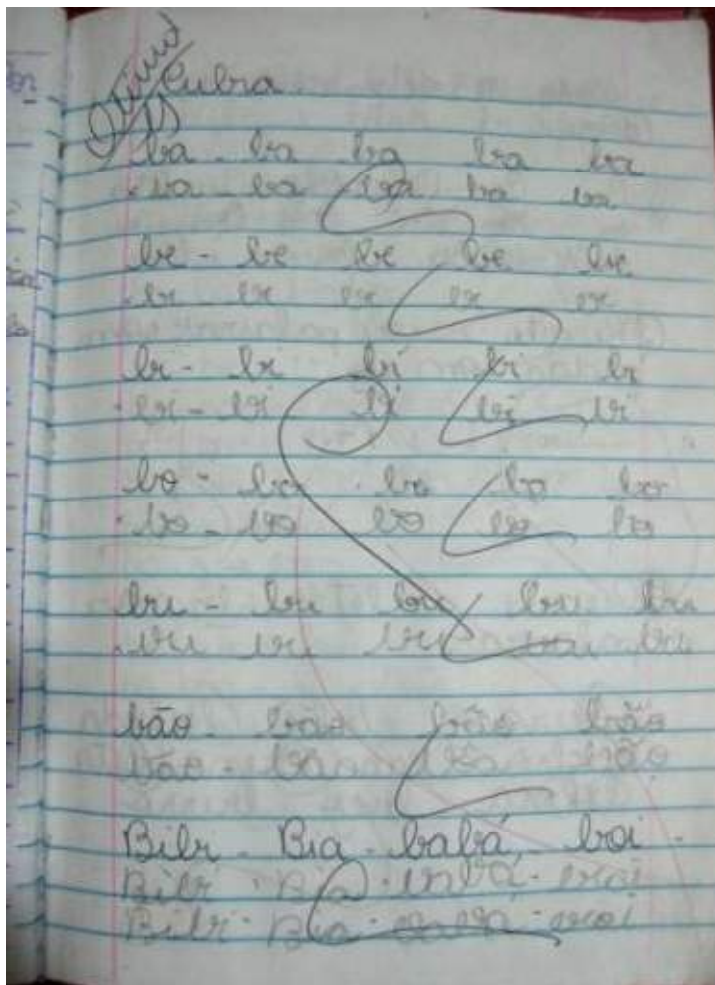 Ótimo
Cubra
ba - ba ba ba ba
ba - ba ba ba ba
be - be be be be
be be be be be
bi - bi bi bi bi
bi - bi bi bi bi
bo - bo bo bo bo
bo - bo bo bo bo
bu - bu bu bu bu
bu bu bu bu bu
bão - bão bão bão
bão - bão bão bão
Bibi - Bia - babá - boi -
Bibi - Bia - babá - boi
Bibi - Bia - babá - boi